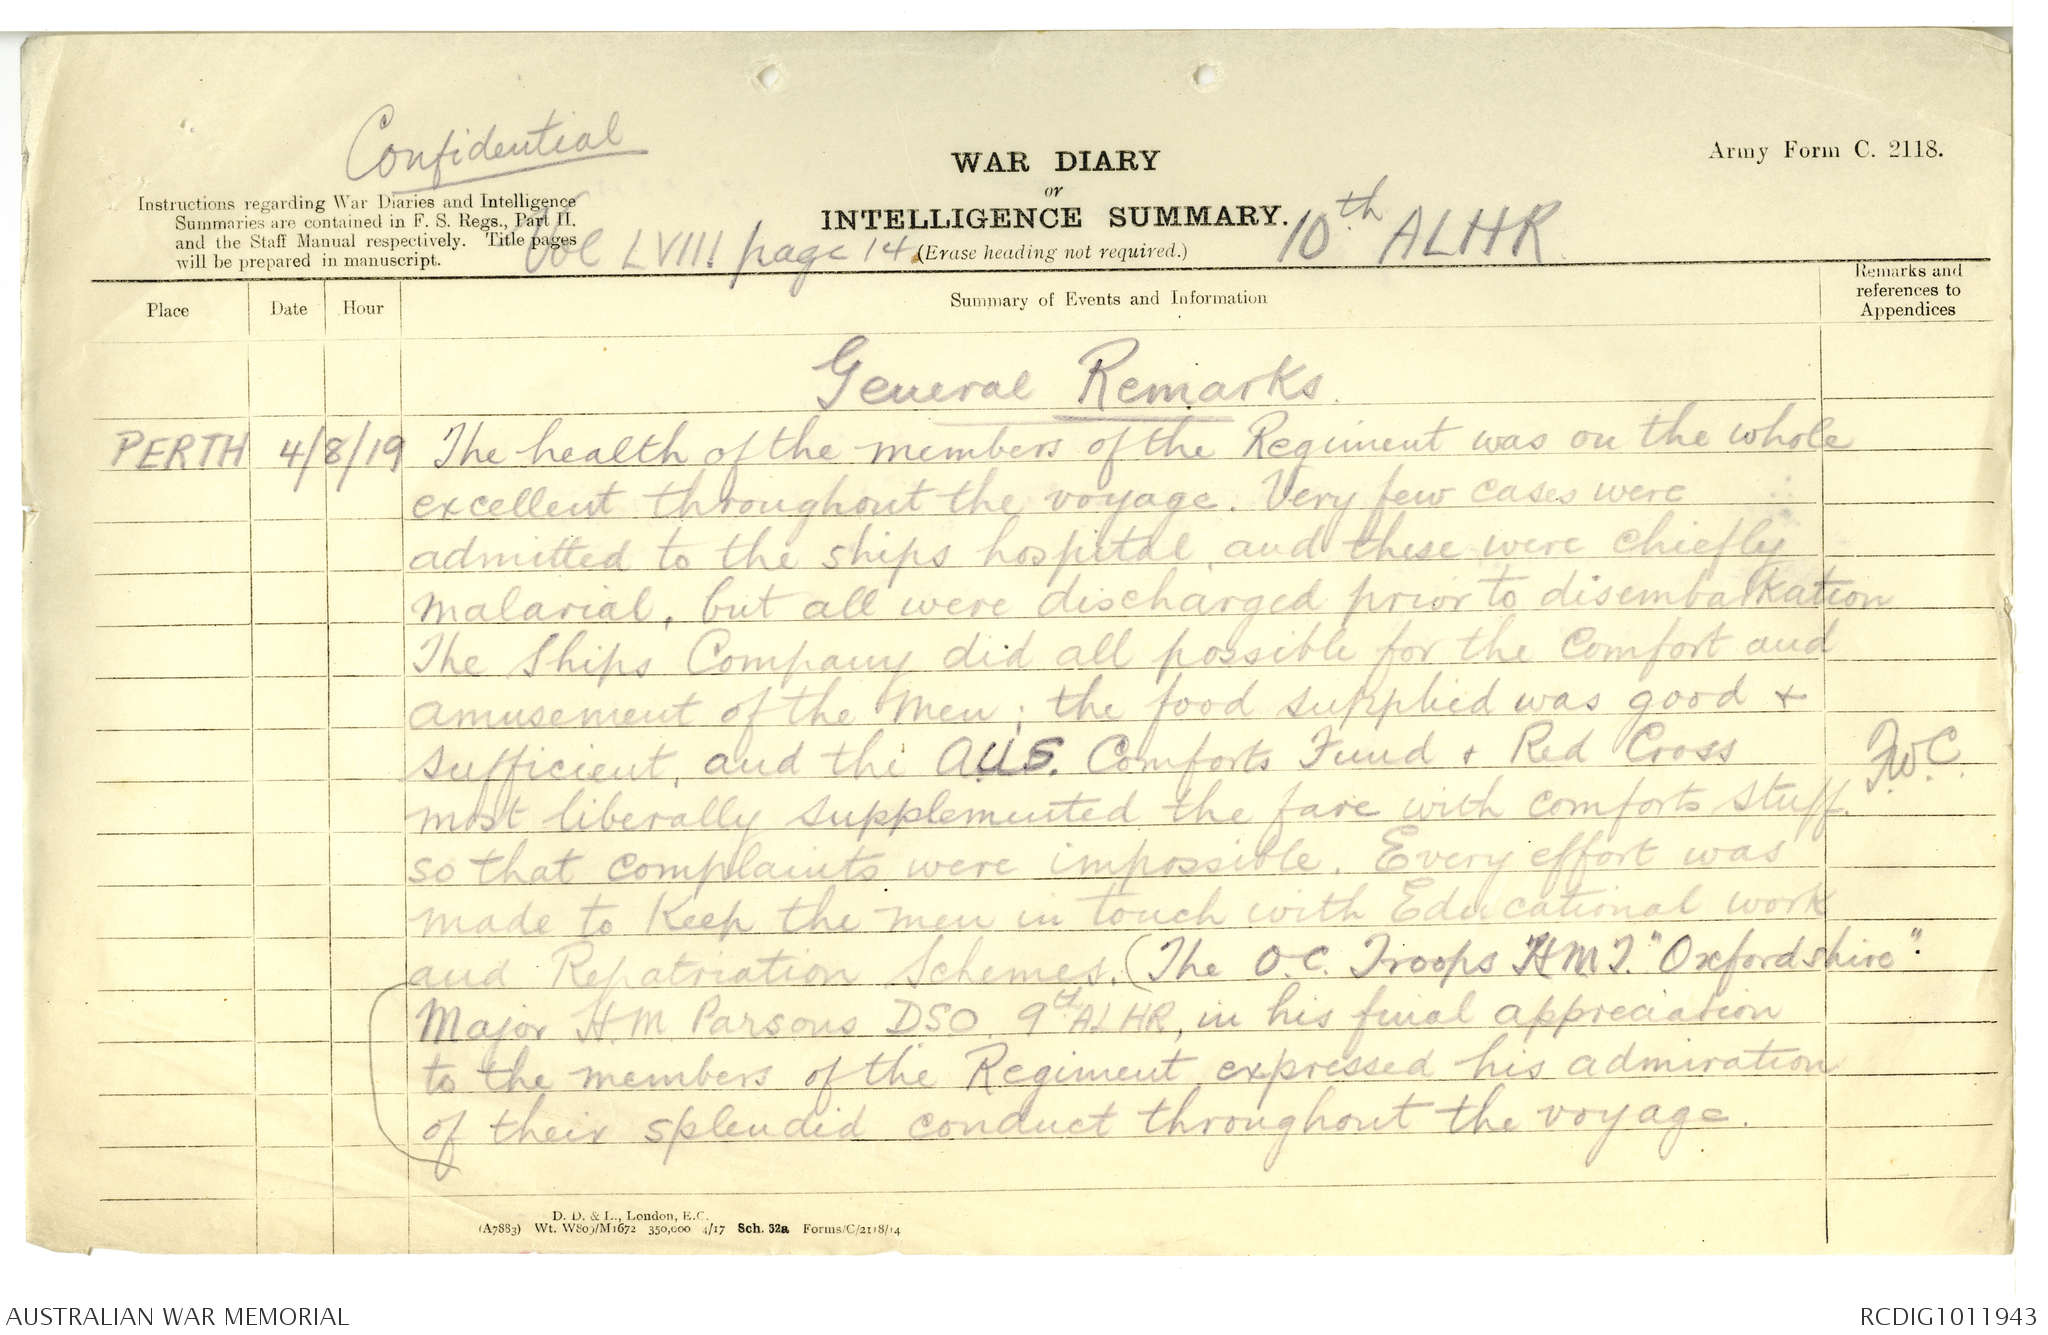 Confidential
WAR DIARY
or
INTELLIGENCE SUMMARY.
(Erase heading not required.)
Army Form C. 2118.
Instructions regarding War Diaries and Intelligence
Summaries are contained in F. S. Regs., Part II.
and the Staff Manual respectively. Title pages
will be prepared in manuscript.
Vol LVIII page 14
10th ALHR.
Place
Date
Hour
Summary of Events and Information
Remarks and
references to
Appendices
General Remarks.
PERTH 4/8/19 The health of the members of the Regiment was on the whole
excellent throughout the voyage. Very few cases were
admitted to the ships hospital, and these were chiefly
malarial, but all were discharged prior to disembarkation
The Ships Company did all possible for the comfort and
amusement of the men; the food supplied was good +
sufficient, and the AUS. Comforts Fund + Red Cross
most liberally supplemented the fare with comforts stuff.
F.W.C.
so that complaints were impossible. Every effort was
made to keep the men in touch with Educational work
and Repatriation Schemes. (The O.C. Troops HMT. "Oxfordshire".
Major H.M. Parsons DSO. 9th ALHR, in his final appreciation
to the members of the Regiment expressed his admiration
of their splendid conduct throughout the voyage.
D. D. & L., London, E.C.
(A7883) Wt. W809/M1672 350,000 4/17 Sch. 52a Forms/C/2118/14
AUSTRALIAN WAR MEMORIAL
RCDIG1011943